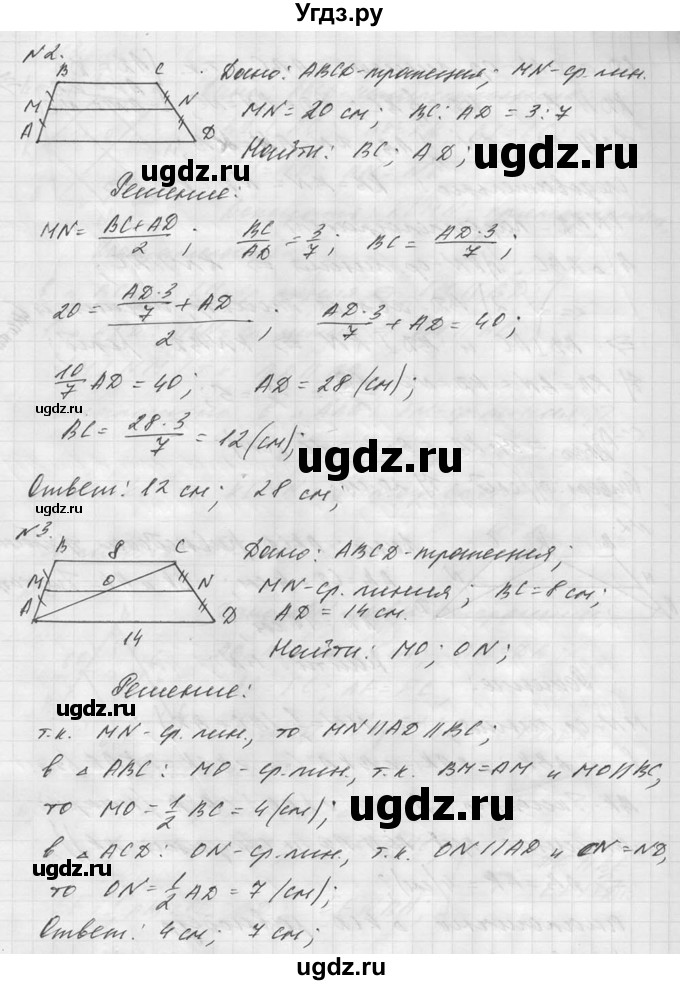 Угдз.ру
№2.
B C
M N
A D
Дано: ABCD-трапеция; MN-ср. лин.
MN = 20 см; BC : AD = 3 : 7
Найти: BC; AD;
ugdz.ru ugdz.ru
Решение:
MN = (BC+AD)/2; BC/AD = 3/7; BC = (AD·3)/7;
20 = ((AD·3)/7 + AD)/2; (AD·3)/7 + AD = 40;
10/7 AD = 40; AD = 28 (см);
ugdz.ru
BC = (28·3)/7 = 12 (см);
ugdz.ru
Ответ: 12 см; 28 см;
№3.
ugdz.ru
B 8 C
M O N
A D
14
Дано: ABCD-трапеция;
MN-ср. линия; BC = 8 см;
AD = 14 см.
Найти: MO; ON;
ugdz.ru
Решение:
т.к. MN - ср. лин., то MN||AD||BC;
в △ ABC: MO - ср. лин., т.к. BM = AM и MO||BC,
то MO = 1/2 BC = 4 (см);
ugdz.ru
в △ ACD: ON - ср. лин., т.к. ON||AD и CN = ND,
то ON = 1/2 AD = 7 (см);
ugdz.ru
Ответ: 4 см; 7 см;
ugdz.ru
ugdz.ru